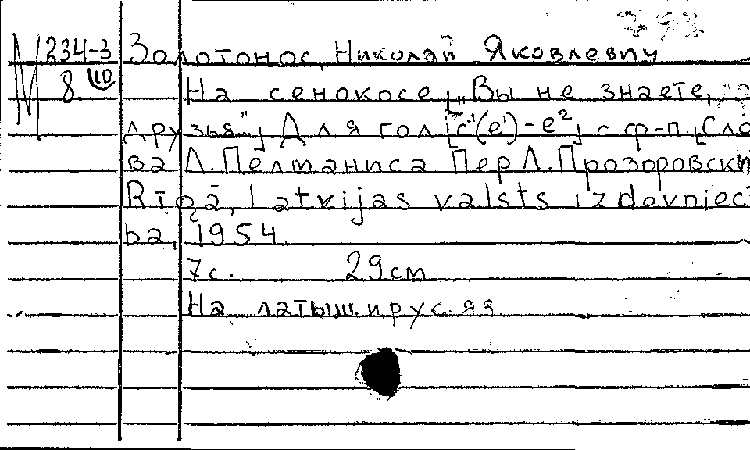 М 234-3
8
Золотонос, Николай Яковлевич
На сенокосе. „Вы не знаете,
друзья". Для гол. [c'(e)-e²] с ф-п. [Сло
ва Л. Пелманиса Пер Л. Прозоровски
Rīgā, Latvijas valsts izdevniec
ba, 1954.
7 с. 29 см
На латыш. и рус. яз